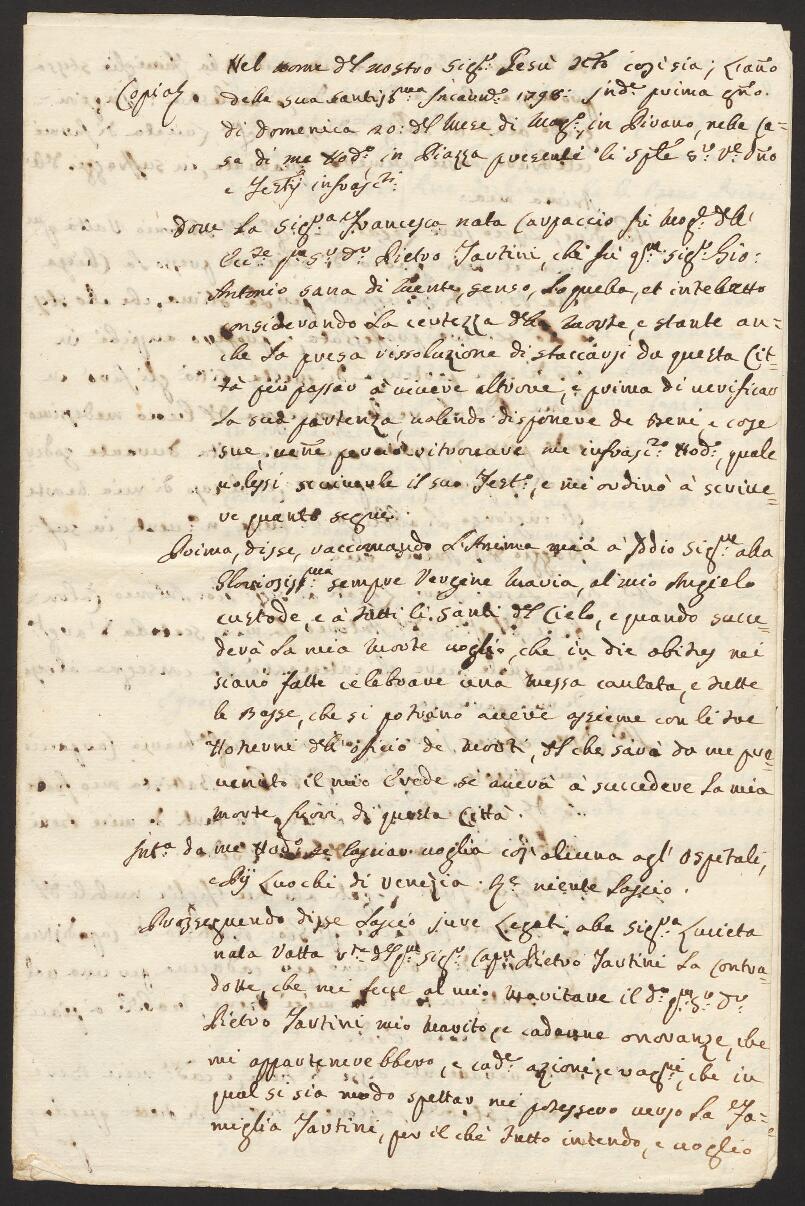 Nel nome del nostro Sig.r Gesù Xsto così sia; L'anno
Copia
della sua Santiss.ma Incarnaz. 1798: Ind.e prima gno.
di domenica 20: del Mese di Mag.o, in Pirano, nella Ca-
sa di me Nod.o in Piazza presenti li Sp.le S.r V.e D.no
e Testij infrasc.ti:
Dove La Sig.ra Francesca nata Carpaccio fù Mog.e dell'
Ecc.te q.m S.r D.r Pietro Tartini, che fù q.m Sig.r Gio:
Antonio sana di Mente, senso, Loquella, et intelletto
considerando La certezza della Morte, e stante an-
che La presa rissoluzione di staccarsi da questa Cit-
tà per passar à vivere altrove; e prima di verificar
La sua partenza, volendo disponere de Beni, e cose
sue venne perciò ritrovare me infrasc.to Nod.o, quale
volessi scriverle il suo Test.o, e mi ordinò à scrive-
re quanto segue.
Prima, disse, raccomando L'Anima mia à Iddio Sig.re alla
Gloriosiss.ma sempre Vergine Maria, al mio Angielo
custode, e à tutti li Santi del Cielo, e quando succe-
derà La mia Morte voglio, che in die obitus mei
siano fatte celebrare una Messa cantata, e tutte
le Basse, che si potrano avere assieme con li tre
Noturni dell'officio de Morti, del che sarà da me pre-
venuto il mio Erede se averà à succedere La mia
morte fuori di questa Città.
Int.a da me Nod.o se lasciar voglia cosa alcuna agl' Ospitali,
e Pij Luochi di Venezia. R.e niente Lascio.
Prosseguendo disse Lascio jure Legati alla Sig.ra Lucieta
nata Vatta r.ta del q.m Sig.r Cap.n Pietro Tartini La Contra-
dotte, che mi fecce al mio Maritare il d.o q.m S.r D.r
Pietro Tartini mio Marito, e cadaune onoranze, che
mi apparteneretbbero, e cad.e azioni, e rag.ni, che in
qual si sia modo spettar mi potessero verso La Fa-
miglia Tartini, per il chè tutto intendo, e voglio